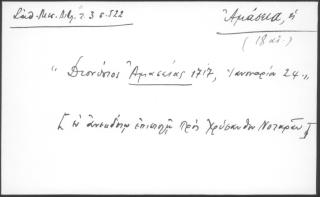 Σάθ. Μεσ. Βιβ. τ. 3 σ. 522
Ἀμάσεια, ἡ
(18 αἰ.)
"Διονύσιος Ἀμασείας 1717, Ἰανουαρίῳ 24."
[ἐν ἀνεκδότῳ ἐπιστολῇ πρός Χρύσανθον Νοταρᾶν]